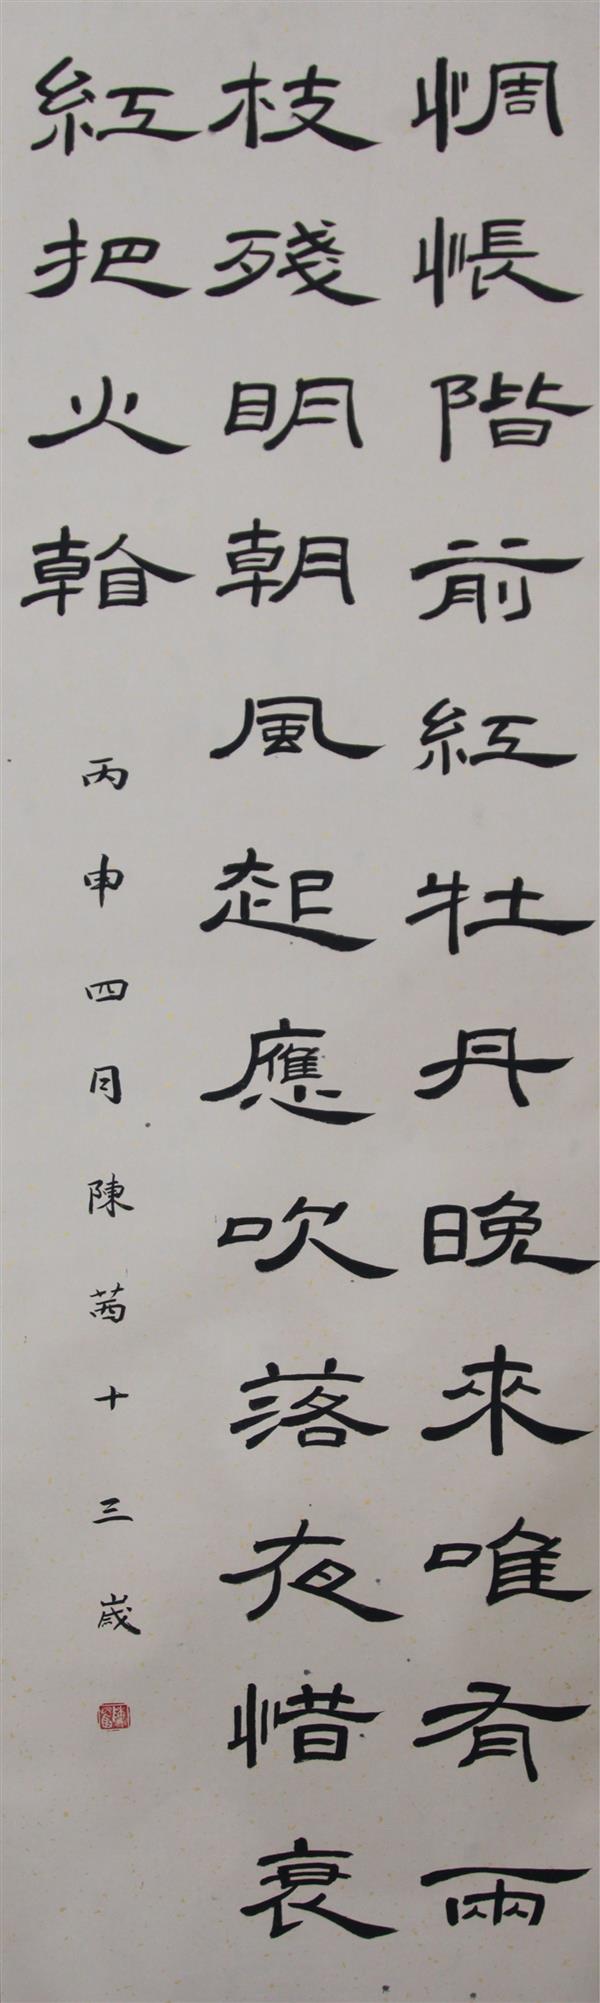 惆悵階前紅牡丹晚來唯有兩
枝殘明朝風起應吹落夜惜衰
紅把火看
丙申四月陳茜十三歲